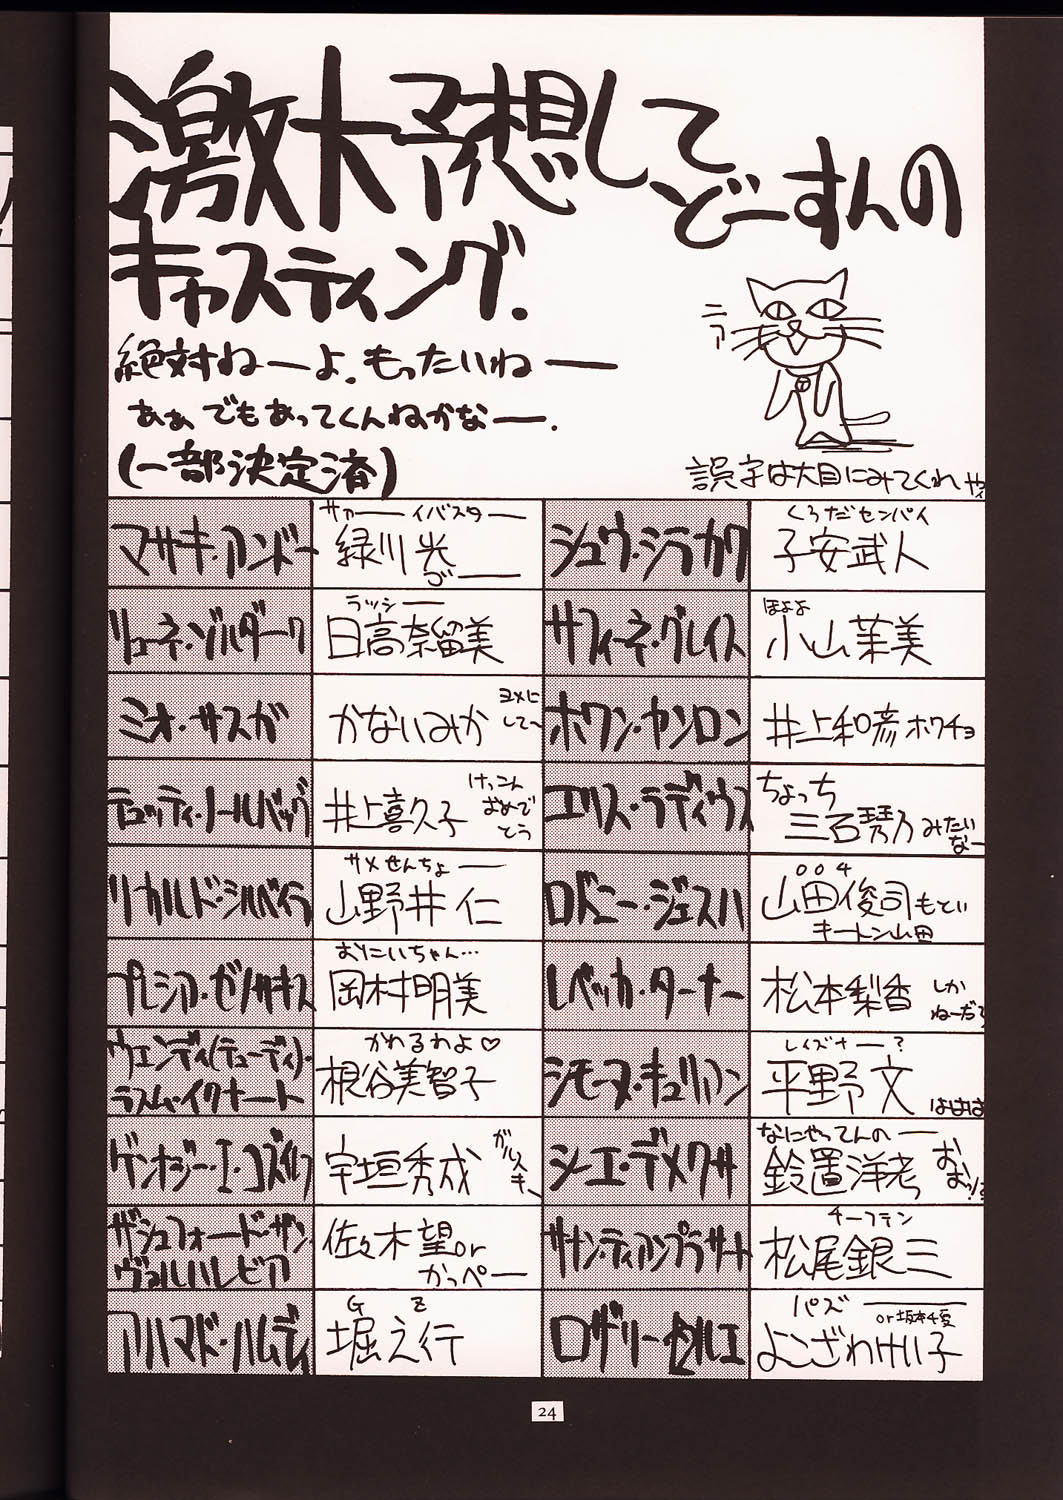 激大予想してどーすんの
キャスティング.
絶対ねーよ.もったいねー
あぁ でもあってくんねかなー.
(一部決定済)
ニァ
誤字は大目にみてくれや
マサキ・アンドー
サァーイバスター
緑川光
ゴー
シュウ・シラカワ
くろだセンパイ
子安武人
リューネ・ゾルダーク
ラッシー
日高奈留美
サフィーネ・グレイス
ほよよ
小山茉美
ミオ・サスガ
かないみか
ヨメにして〜
ホワン・ヤンロン
井上和彦 ホワチョ
テュッティ・ノールバック
井上喜久子
けっこんおめでとう
エリス・ラディウス
ちょっち
三石琴乃 みたいなー
リカルド・シルベイラ
サメせんちょー
山野井仁
ロドニー・ジェスハ
004
山田俊司 もとい
キートン山田
プレシア・ゼノサキス
おにいちゃん…
岡村明美
レベッカ・ターナー
松本梨香
しかねーだろ
ウエンディ(テューディ)・
ラスム・イクナート
かわるわよ♡
根谷美智子
シモーヌ・キュリアン
レイズナー?
平野文
ははは
ゲンナジー・I・コズイレフ
宇垣秀成
シーエ・デメクサ
なにやってんのー
鈴置洋孝
ザシュフォード・ザン・
ヴァルハレビア
佐々木望or
かっぺー
サナン・ティアンプラサート
チーフテン
松尾銀三
アハマド・ハムディ
G Z
堀之行
ロザリー・セルエ
パズー
or坂本千夏
よこざわけい子
24